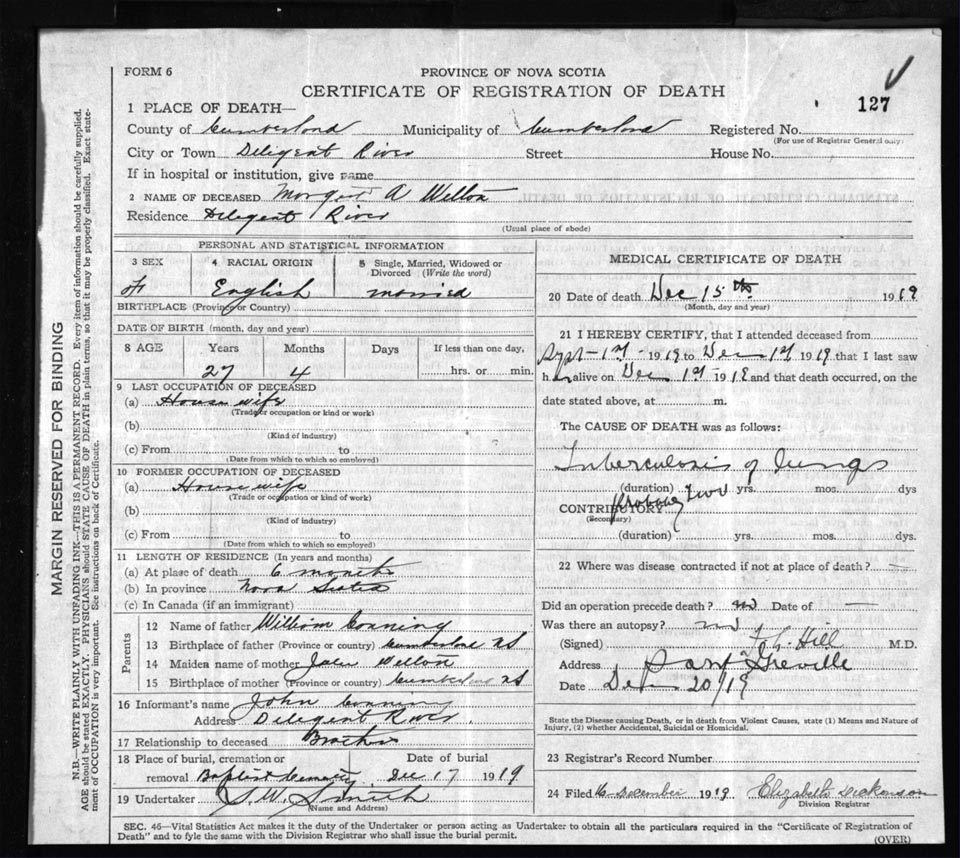 FORM 6
PROVINCE OF NOVA SCOTIA
CERTIFICATE OF REGISTRATION OF DEATH
127
1 PLACE OF DEATH—
County of Cumberland Municipality of Cumberland Registered No.
(For use of Registrar General only)
City or Town Deligent River Street House No.
If in hospital or institution, give name
2 NAME OF DECEASED A Welton
Residence Deligent River
(Usual place of abode)
PERSONAL AND STATISTICAL INFORMATION
3 SEX 4 RACIAL ORIGIN 5 Single, Married, Widowed or Divorced (Write the word)
F English married
BIRTHPLACE (Province or Country)
DATE OF BIRTH (month, day and year)
8 AGE Years Months Days If less than one day,
27 4 hrs. or min.
9 LAST OCCUPATION OF DECEASED
(a) House wife
(Trade or occupation or kind or work)
(b)
(Kind of industry)
(c) From to
(Date from which to which so employed)
10 FORMER OCCUPATION OF DECEASED
(a) House wife
(Trade or occupation or kind of work)
(b)
(Kind of industry)
(c) From to
(Date from which to which so employed)
11 LENGTH OF RESIDENCE (In years and months)
(a) At place of death 6 months
(b) In province Nova Scotia
(c) In Canada (if an immigrant)
Parents
12 Name of father William Conning
13 Birthplace of father (Province or country) Cumberland NS
14 Maiden name of mother Welton
15 Birthplace of mother (Province or country) Cumberland NS
16 Informant's name John Conning
Address Deligent River
17 Relationship to deceased Brother
18 Place of burial, cremation or Date of burial
removal Baptist Cemetery Dec 17 1919
19 Undertaker S. W. Smith
(Name and Address)
MEDICAL CERTIFICATE OF DEATH
20 Date of death Dec 15th 1919
(Month, day and year)
21 I HEREBY CERTIFY, that I attended deceased from
Sept 1st 1919 to Dec 1st 1919 that I last saw
her alive on Dec 1st 1919 and that death occurred, on the
date stated above, at m.
The CAUSE OF DEATH was as follows:
Tuberculosis of lungs
(duration) yrs. mos. dys
Probably Two
CONTRIBUTORY
(Secondary)
(duration) yrs. mos. dys.
22 Where was disease contracted if not at place of death? —
Did an operation precede death? no Date of —
Was there an autopsy? no
(Signed) Hill M.D.
Address Greville
Date Dec 20/19
State the Disease causing Death, or in death from Violent Causes, state (1) Means and Nature of
Injury, (2) whether Accidental, Suicidal or Homicidal.
23 Registrar's Record Number
24 Filed December 1919 Elizabeth Dickenson
Division Registrar
SEC. 46—Vital Statistics Act makes it the duty of the Undertaker or person acting as Undertaker to obtain all the particulars required in the "Certificate of Registration of
Death" and to fyle the same with the Division Registrar who shall issue the burial permit.
(OVER)
MARGIN RESERVED FOR BINDING
N.B.—WRITE PLAINLY WITH UNFADING INK—THIS IS A PERMANENT RECORD. Every item of information should be carefully supplied.
AGE should be stated EXACTLY. PHYSICIANS should STATE CAUSE OF DEATH in plain terms, so that it may be properly classified. Exact state-
ment of OCCUPATION is very important. See instructions on back of Certificate.